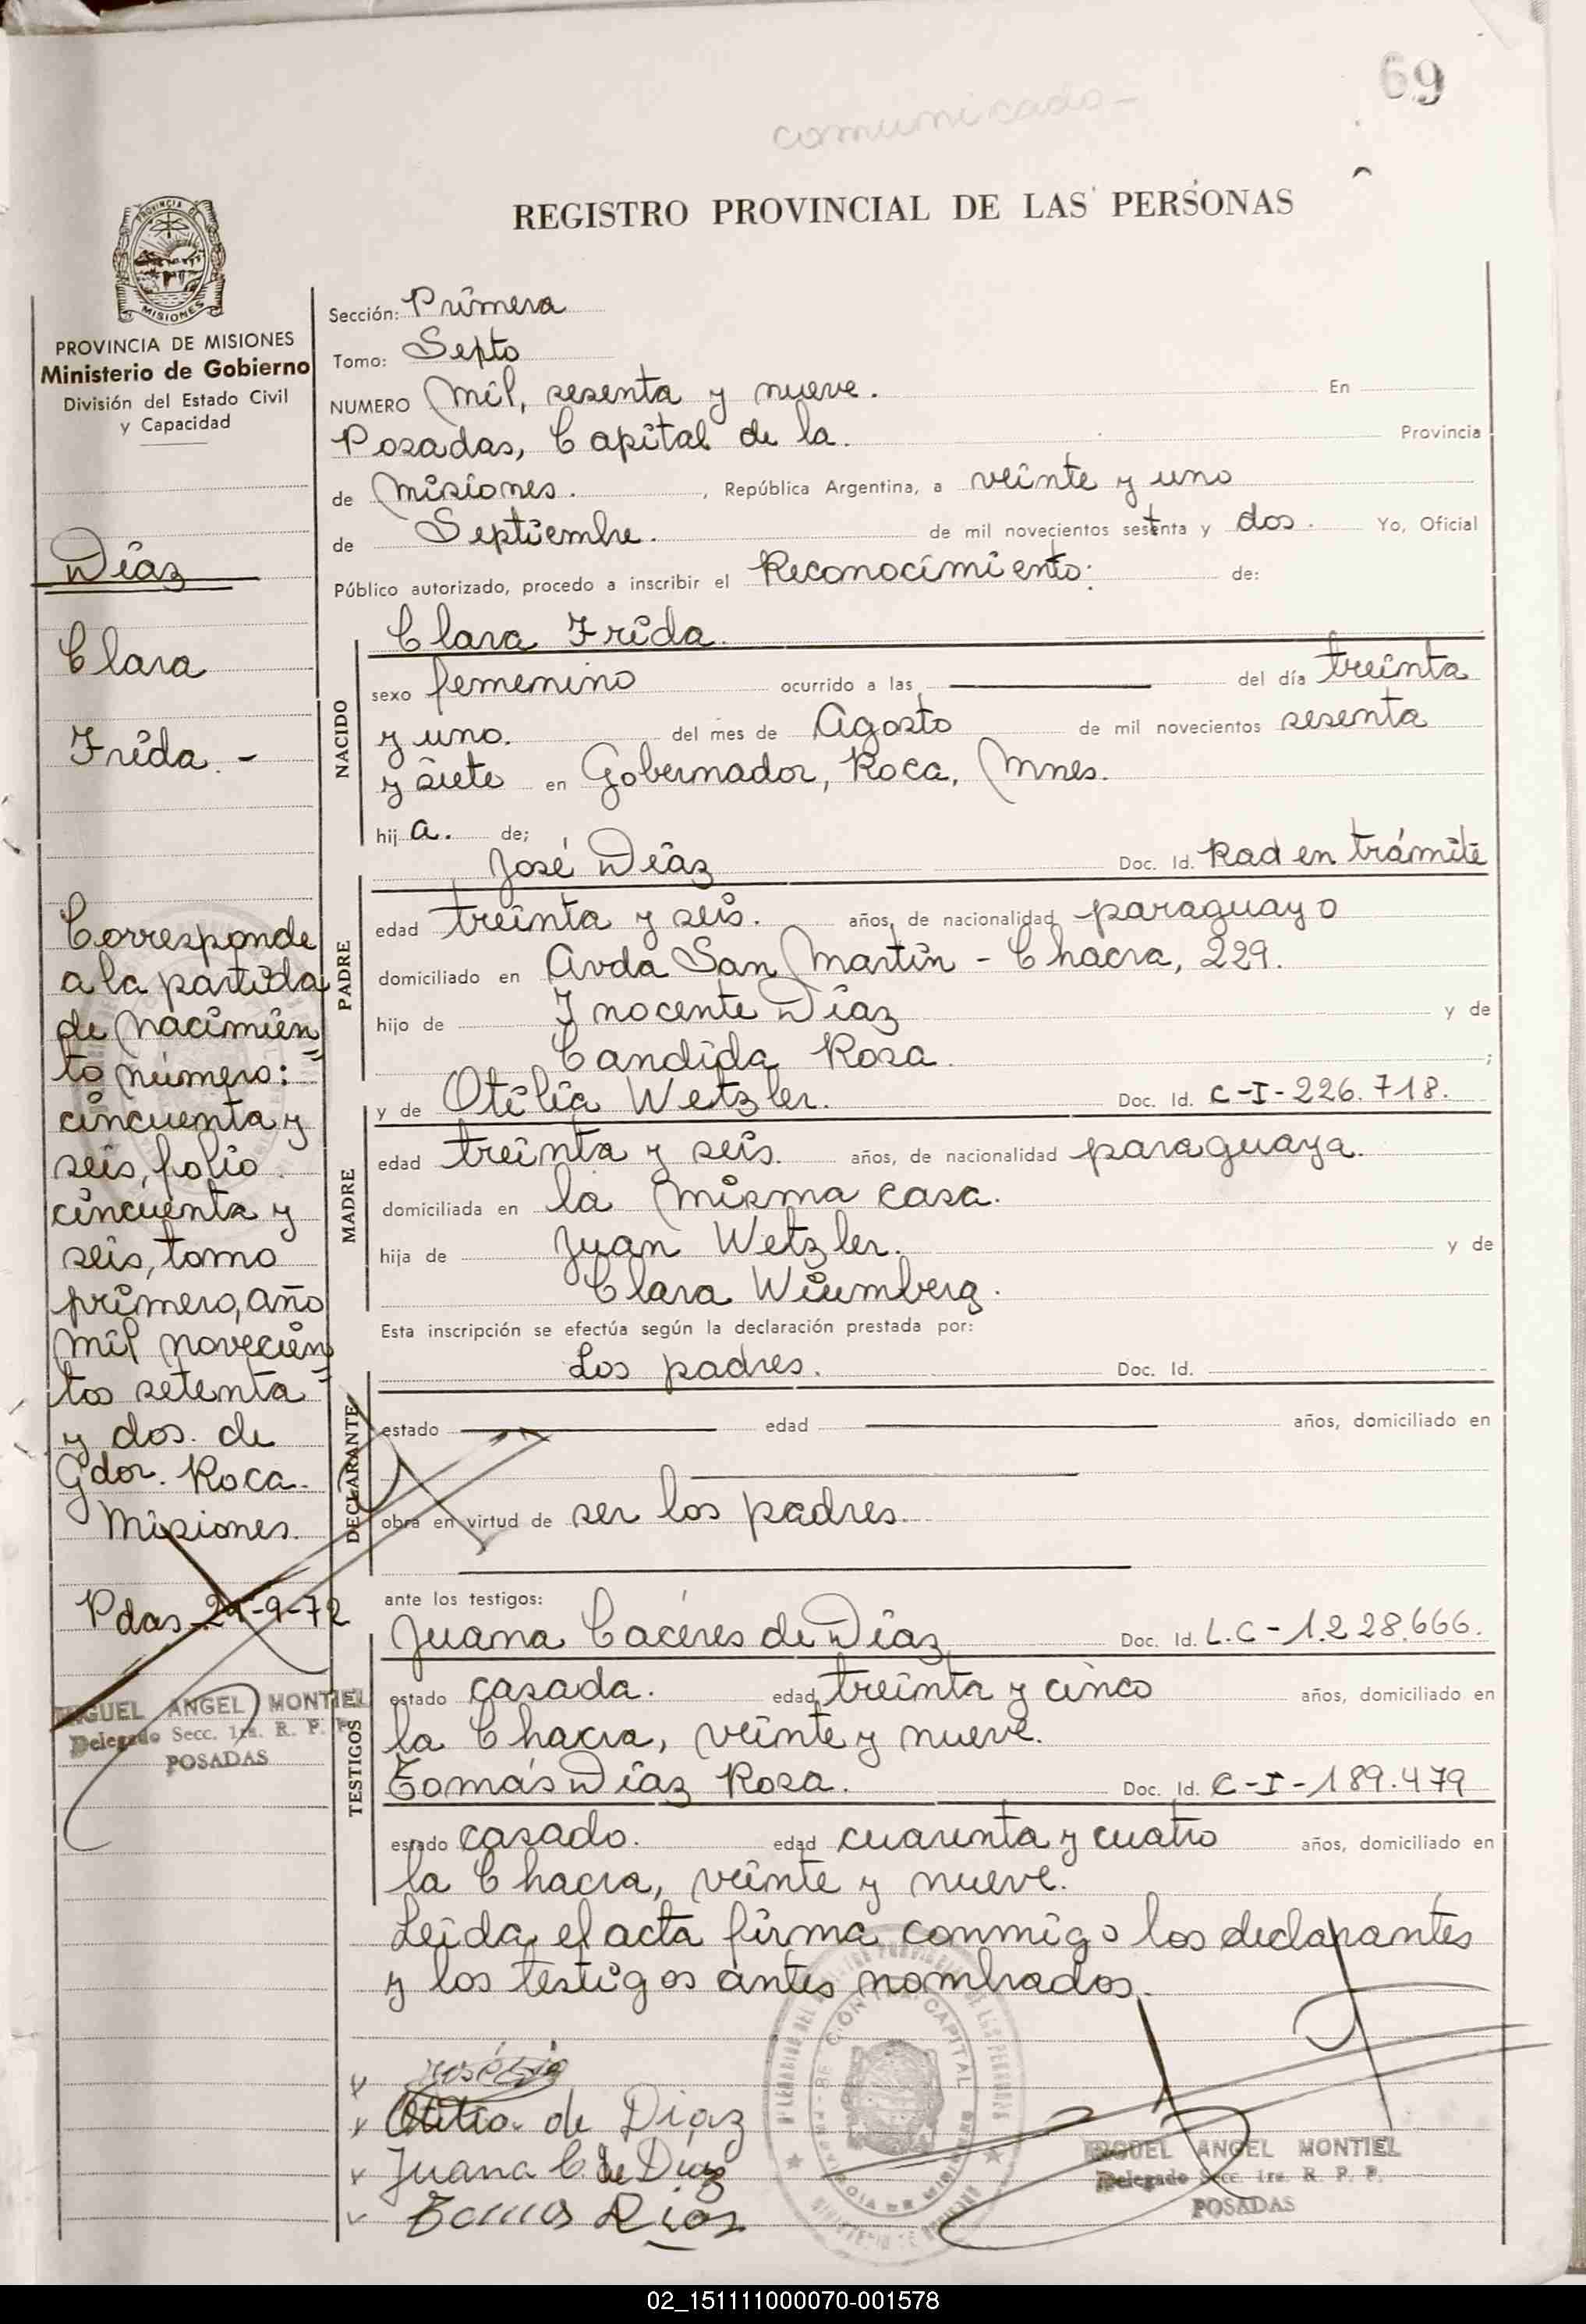 69
comunicado -
REGISTRO PROVINCIAL DE LAS PERSONAS
PROVINCIA DE MISIONES
Ministerio de Gobierno
División del Estado Civil
y Capacidad
Díaz
Clara
Frida. -
Corresponde
a la partida
de nacimien
to número:
cincuenta y
seis, folio
cincuenta y
seis, tomo
primero, año
mil novecien
tos setenta
y dos. de
Gdor. Roca.
Misiones.
Pdas 21-9-72
MIGUEL ANGEL MONTIEL
Delegado Secc. 1ra. R. P. P.
POSADAS
Sección: Primera
Tomo: Septo
NUMERO Mil, sesenta y nueve. En
Posadas, Capital de la. Provincia
de Misiones. , República Argentina, a veinte y uno
de Septiembre. de mil novecientos setenta y dos. Yo, Oficial
Público autorizado, procedo a inscribir el Reconocimiento: de:
NACIDO
Clara Frida.
sexo femenino ocurrido a las del día treinta
y uno. del mes de Agosto de mil novecientos sesenta
y siete en Gobernador, Roca, Mnes.
hij a. de;
PADRE
José Díaz Doc. Id. Rad en trámite
edad treinta y seis. años, de nacionalidad paraguayo
domiciliado en Avda San Martín - Chacra, 229.
hijo de Inocente Díaz y de
Candida Rosa. ;
MADRE
y de Otilia Wetzler. Doc. Id. C-I-226.718.
edad treinta y seis. años, de nacionalidad paraguaya.
domiciliada en la misma casa.
hija de Juan Wetzler. y de
Clara Wiumberg.
Esta inscripción se efectúa según la declaración prestada por:
DECLARANTE
Los padres. Doc. Id.
estado edad años, domiciliado en
obra en virtud de ser los padres.
ante los testigos:
TESTIGOS
Juana Cacéres de Díaz Doc. Id. L.C - 1.228.666.
estado casada. edad treinta y cinco años, domiciliado en
la Chacra, veinte y nueve.
Tomás Díaz Rosa. Doc. Id. C-I-189.479
estado casado. edad cuarenta y cuatro años, domiciliado en
la Chacra, veinte y nueve.
Leida el acta firma conmigo los declarantes
y los testigos antes nombrados.
Otilia de Diaz
Juana C. de Díaz
Tomas Díaz
MIGUEL ANGEL MONTIEL
Delegado Secc. 1ra. R. P. P.
POSADAS
02_151111000070-001578